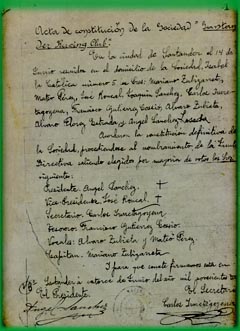 Acta de constitución de la Sociedad "Santander Racing Club"
En la ciudad de Santander el 14 de
Junio reunidos en el domicilio de la Sociedad, Isabel
la Católica número 5 los Sres: Mariano Zubizarreta,
Mateo Pérez, José Roncal, Joaquín Sánchez, Carlos
Francisco Gutiérrez Cossío, Alvaro Zubieta,
Alvaro Flórez Estrada y Angel Sánchez Losada
Acuerdan la constitución definitiva de
la Sociedad, procediéndose al nombramiento de la Junta
Directiva siendo elegidos por mayoría de votos los
siguiente:
Presidente Angel Sánchez
Vice-Presidente José Roncal
Secretario Carlos
Tesorero Francisco Gutiérrez Cossío
Vocales: Alvaro Zubieta y Mateo Pérez
Capitán. Mariano Zubizarreta
Y para que conste firmamos esta en
Santander a catorce de Junio del año mil novecientos
El Presidente. El Secretario
Angel Sánchez Carlos